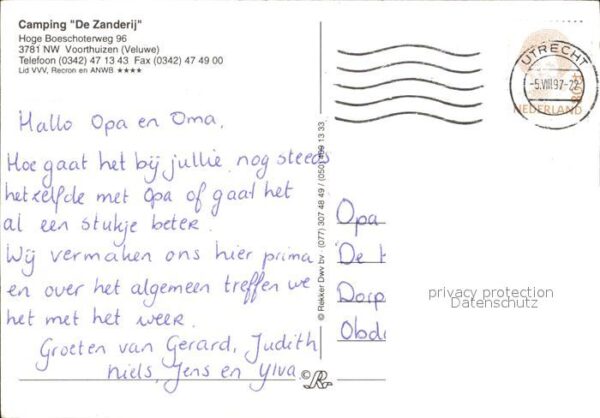 Camping "De Zanderij"
Hoge Boeschoterweg 96
3781 NW Voorthuizen (Veluwe)
Telefoon (0342) 47 13 43 Fax (0342) 47 49 00
Lid VVV, Recron en ANWB ★★★★
UTRECHT
-5.VIII.97-22
NEDERLAND
Hallo Opa en Oma,
Hoe gaat het bij jullie, nog steeds
hetzelfde met Opa of gaat het
al een stukje beter.
Wij vermaken ons hier prima
en over het algemeen treffen we
het met het weer.
Groeten van Gerard, Judith
Niels, Jens en Ylva.
© Rekker Dwv bv (077) 307 48 49 / (050) 13 33
Opa
De
Dorp
Obd
privacy protection
Datenschutz
©